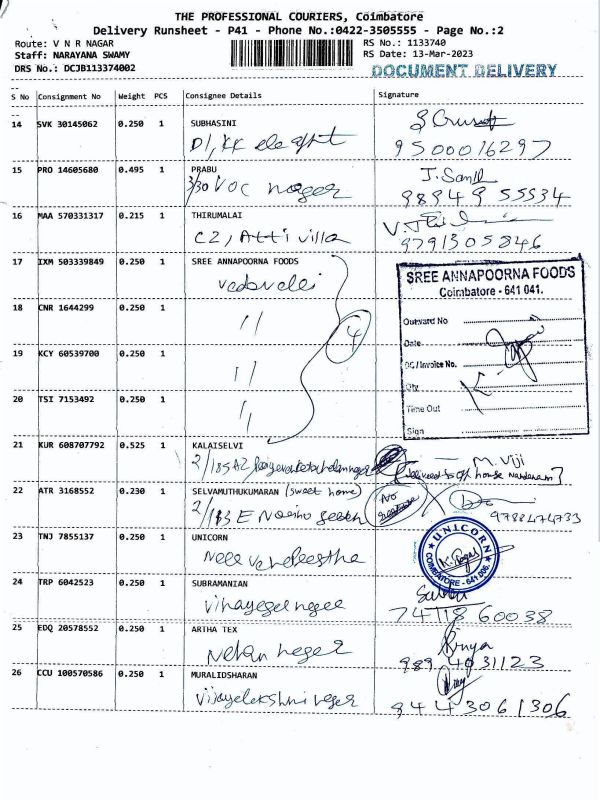 THE PROFESSIONAL COURIERS, Coimbatore
Delivery Runsheet - P41 - Phone No.:0422-3505555 - Page No.:2
Route: V N R NAGAR
RS No.: 1133740
Staff: NARAYANA SWAMY
RS Date: 13-Mar-2023
DRS No.: DCJB113374002
DOCUMENT DELIVERY
S No Consignment No Weight PCS Consignee Details Signature
14 SVK 30145062 0.250 1 SUBHASINI
D1, KK
9500016297
15 PRO 14605680 0.495 1 PRABU
3/30 VOC nager
98949 55534
16 MAA 570331317 0.215 1 THIRUMALAI
C2, Atti villa
9791305846
17 IXM 503339849 0.250 1 SREE ANNAPOORNA FOODS
Vadavalli
18 CNR 1644299 0.250 1 //
4
19 KCY 60539700 0.250 1 //
20 TSI 7153492 0.250 1 //
SREE ANNAPOORNA FOODS
Coimbatore - 641 041.
Outward No
Date
DC / Invoice No.
Qty
Time Out
Sign
21 KUR 608707792 0.525 1 KALAISELVI
M. Viji
22 ATR 3168552 0.230 1 SELVAMUTHUKUMARAN (Sweet home)
No
9788474733
23 TNJ 7855137 0.250 1 UNICORN
UNICORN
COIMBATORE - 641 006.
24 TRP 6042523 0.250 1 SUBRAMANIAN
74118 60038
25 EDQ 20578552 0.250 1 ARTHA TEX
989 4031123
26 CCU 100570586 0.250 1 MURALIDSHARAN
Vijayelekshmi neger
9443061306